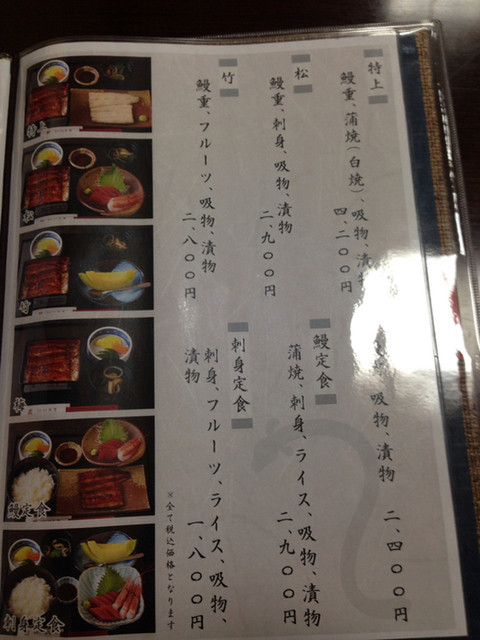 特上
鰻重、蒲焼(白焼)、吸物、漬物
四、二〇〇円
松
鰻重、刺身、吸物、漬物
二、九〇〇円
竹
鰻重、フルーツ、吸物、漬物
二、八〇〇円
吸物、漬物
二、四〇〇円
鰻定食
蒲焼、刺身、ライス、吸物、漬物
二、九〇〇円
刺身定食
刺身、フルーツ、ライス、吸物、
漬物
一、八〇〇円
※全て税込価格となります
特上
松
竹
鰻定食
刺身定食